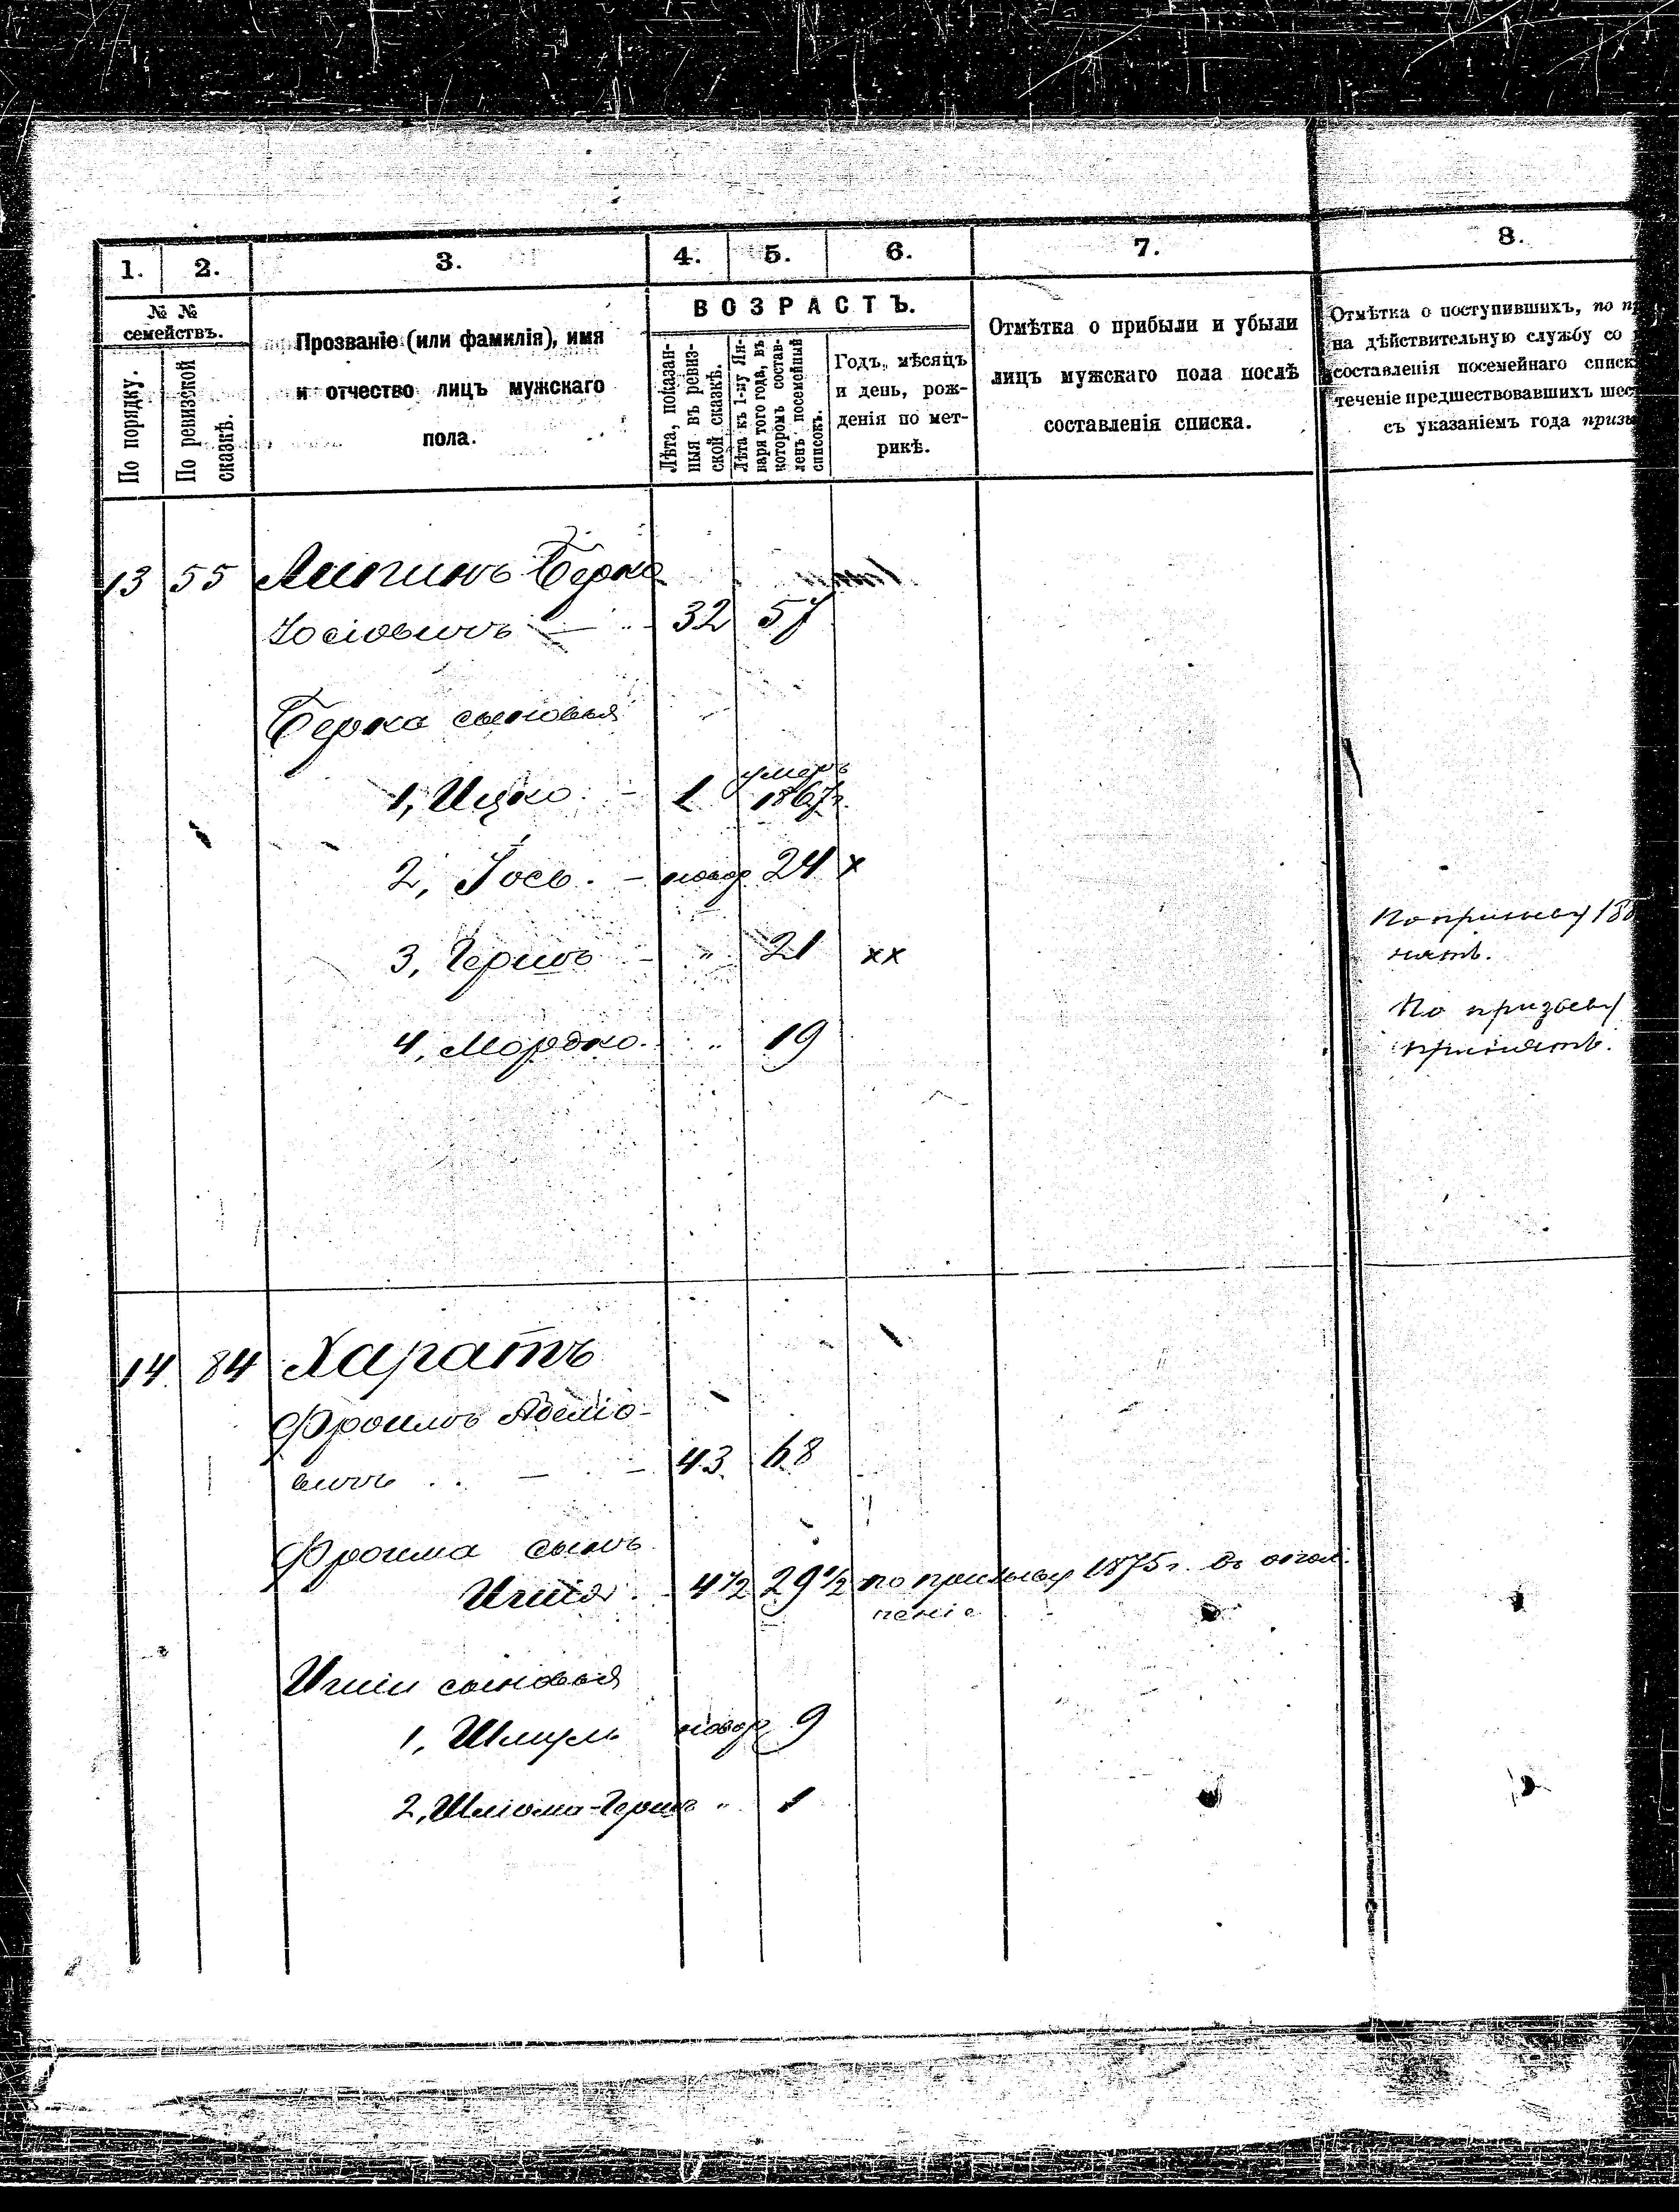 1. 2. 3. 4. 5. 6. 7. 8.
№ №
семействъ.
По порядку.
По ревизской
сказкѣ.
Прозваніе (или фамилія), имя
и отчество лицъ мужскаго
пола.
ВОЗРАСТЪ.
Лѣта, показан-
ныя въ ревиз-
ской сказкѣ.
Лѣта къ 1-му Ян-
варя того года, въ
которомъ состав-
ленъ посемейный
списокъ.
Годъ, мѣсяцъ
и день, рож-
денія по мет-
рикѣ.
Отмѣтка о прибыли и убыли
лицъ мужскаго пола послѣ
составленія списка.
Отмѣтка о поступившихъ, по п
на дѣйствительную службу со
составленія посемейнаго списк
теченіе предшествовавшихъ шес
съ указаніемъ года призы
13 55 Липинъ Берко
Іосіовичъ — 32 57
Берка сыновья
1, Ицко. - 1 умеръ
1867г.
2, Іось. - новор 24 х
3, Гершъ - " 21 хх
По призыву 188
нятъ.
4, Мордко. " 19
По призыву
принятъ.
14 84 Харатъ
Фроимъ Абеліо-
вичъ . . — - 43 68
Фроима сынъ
Игшія. - 4½ 29½ по призыву 1875г. въ опол-
ченіе
Игшіи сыновья
1, Шмуль новор 9
2, Шліома-Гершъ " 1